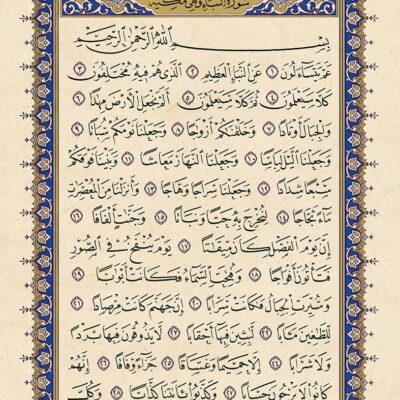 سورة النبإ وهي مكية
بِسْمِ اللَّهِ الرَّحْمَٰنِ الرَّحِيمِ
عَمَّ يَتَسَاءَلُونَ ١ عَنِ النَّبَإِ الْعَظِيمِ ٢ الَّذِي هُمْ فِيهِ مُخْتَلِفُونَ ٣
كَلَّا سَيَعْلَمُونَ ٤ ثُمَّ كَلَّا سَيَعْلَمُونَ ٥ أَلَمْ نَجْعَلِ الْأَرْضَ مِهَٰدًا ٦
وَالْجِبَالَ أَوْتَادًا ٧ وَخَلَقْنَٰكُمْ أَزْوَٰجًا ٨ وَجَعَلْنَا نَوْمَكُمْ سُبَاتًا ٩
وَجَعَلْنَا الَّيْلَ لِبَاسًا ١٠ وَجَعَلْنَا النَّهَارَ مَعَاشًا ١١ وَبَنَيْنَا فَوْقَكُمْ
سَبْعًا شِدَادًا ١٢ وَجَعَلْنَا سِرَاجًا وَهَّاجًا ١٣ وَأَنْزَلْنَا مِنَ الْمُعْصِرَٰتِ
مَاءً ثَجَّاجًا ١٤ لِنُخْرِجَ بِهِ حَبًّا وَنَبَاتًا ١٥ وَجَنَّٰتٍ أَلْفَافًا ١٦
إِنَّ يَوْمَ الْفَصْلِ كَانَ مِيقَٰتًا ١٧ يَوْمَ يُنْفَخُ فِي الصُّورِ
فَتَأْتُونَ أَفْوَاجًا ١٨ وَفُتِحَتِ السَّمَاءُ فَكَانَتْ أَبْوَابًا ١٩
وَسُيِّرَتِ الْجِبَالُ فَكَانَتْ سَرَابًا ٢٠ إِنَّ جَهَنَّمَ كَانَتْ مِرْصَادًا ٢١
لِلطَّٰغِينَ مَآبًا ٢٢ لَٰبِثِينَ فِيهَا أَحْقَابًا ٢٣ لَا يَذُوقُونَ فِيهَا بَرْدًا
وَلَا شَرَابًا ٢٤ إِلَّا حَمِيمًا وَغَسَّاقًا ٢٥ جَزَاءً وِفَاقًا ٢٦ إِنَّهُمْ
كَانُوا لَا يَرْجُونَ حِسَابًا ٢٧ وَكَذَّبُوا بِآيَٰتِنَا كِذَّابًا ٢٨ وَكُلَّ